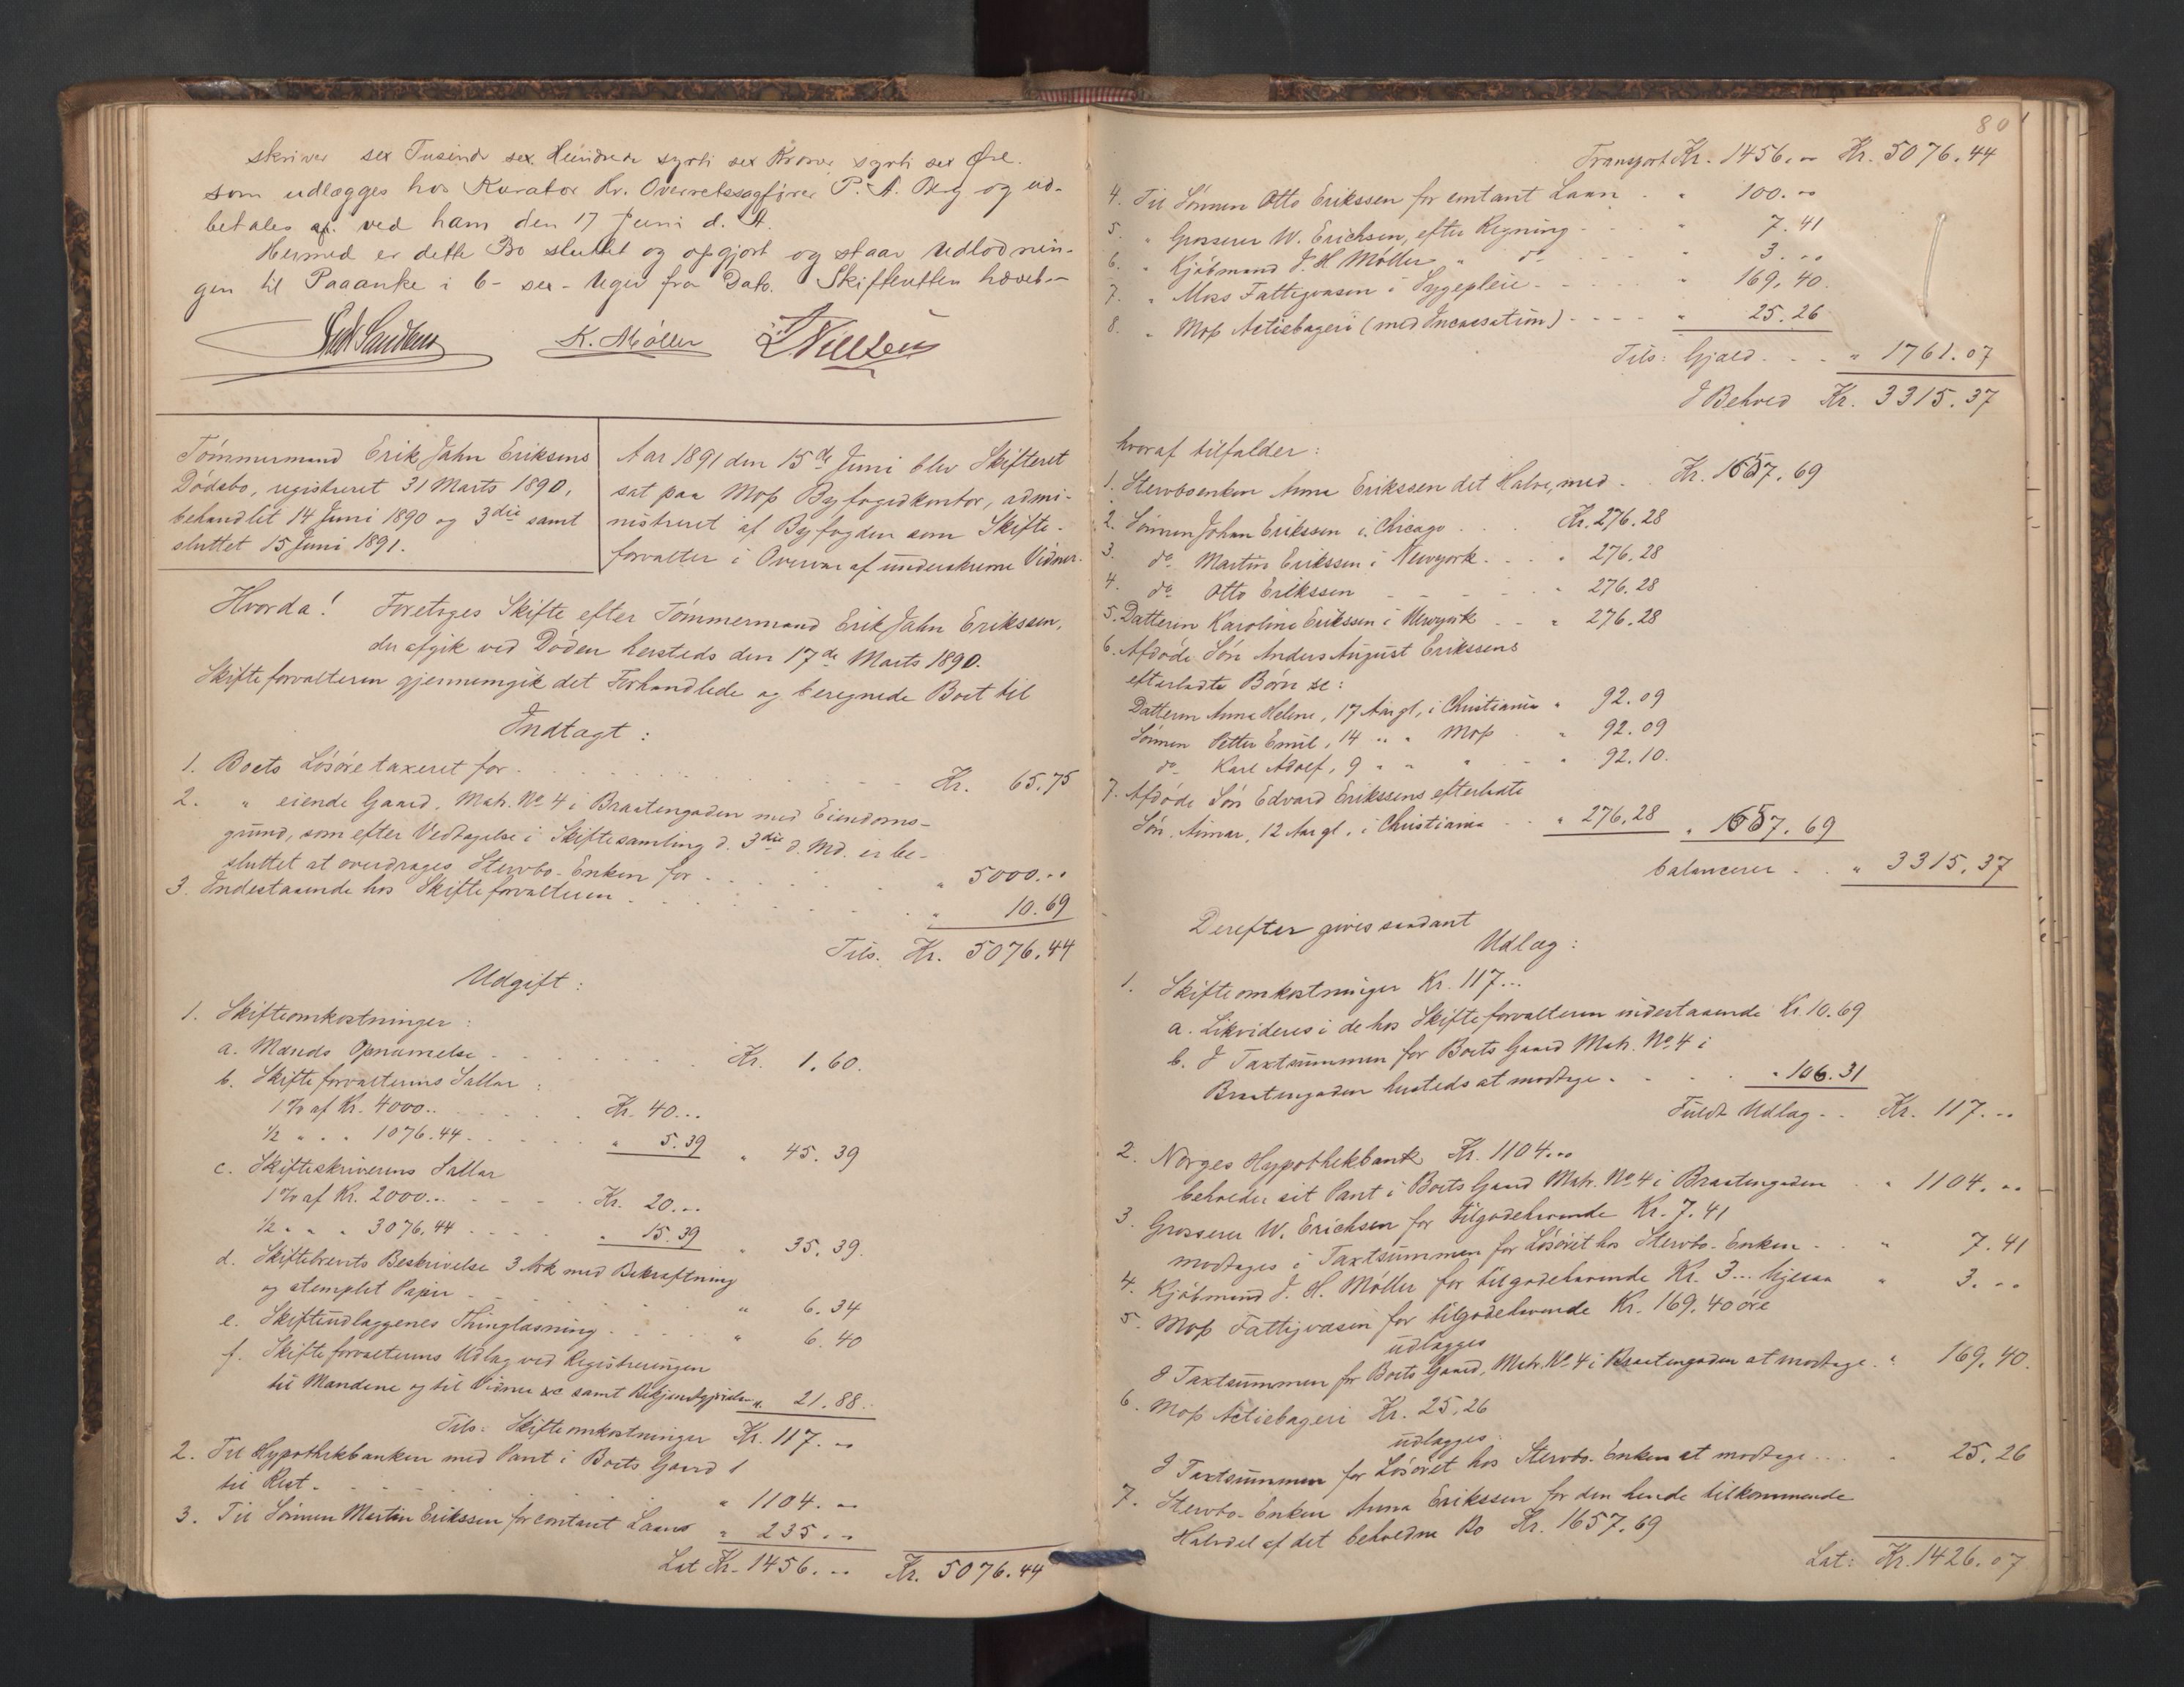 skriver sex Tusinde sex Hundrede syvti sex Kroner syvti sex Øre.
som udlægges hos Kurator Hr. Overretssagfører P. A. Berg og ud-
betales af ved ham den 17 Juni d. A.
Hermed er dette Bo sluttet og opgjort og staar Udlodnin-
gen til Paaanke i 6 - sex - Uger fra Dato. Skifteretten hævet.
K. Møller
Nielsen
Tömmermand Erik Jahn Eriksens
Dödsbo, registreret 31 Marts 1890,
behandlet 14 Juni 1890 og 3die samt
sluttet 15 Juni 1891.
Aar 1891 den 15de Juni blev Skifteret
sat paa Moss Byfogedkontor, admi-
nistreret af Byfogden som Skifte-
forvalter i Overvær af underskrevne Vidner.
Hvorda! Foretoges Skifte efter Tömmermand Erik Jahn Erikssen,
der afgik ved Döden hersteds den 17de Marts 1890.
Skifteforvalteren gjennemgik det Forhandlede og beregnede Boet til
Indtægt:
1. Boets Lösöre taxeret for . . . Kr. 65.75
2. " eiende Gaard, Matr. No 4 i Braatengaden med Eiendoms-
grund, som efter Vedtagelse i Skiftesamling d. 3die d. Md. er be-
sluttet at overdrages Stervbo-Enken for . . . " 5000. "
3. Indestaaende hos Skifteforvalteren . . . " 10.69
Tils. Kr. 5076.44
Udgift:
1. Skifteomkostninger:
a. Mænds Opnævnelse . . . Kr. 1.60.
b. Skifteforvalterens Sallar:
1 % af Kr. 4000.. . . . Kr. 40...
1/2 " " " 1076.44 . . . " 5.39 " 45.39
c. Skifteskriverens Sallar
1 % af Kr. 2000.. . . . Kr. 20...
1/2 " " " 3076.44 . . . " 15.39 " 35.39.
d. Skiftebrevets Beskrivelse 3 Ark med Bekræftning
og stemplet Papir . . . " 6.34
e. Skifteudlæggenes Thinglæsning . . . " 6.40
f. Skifteforvalterens Udlæg ved Registreringen
til Mændene og til Vidner &c samt " 21.88.
Tils: Skifteomkostninger Kr. 117. "
2. Til Hypothekbanken med Pant i Boets Gaard
til Rest . . . " 1104. "
3. Til Sönnen Martin Erikssen for contant Laan " 235. "
Lat Kr. 1456... Kr. 5076.44
80
Transport Kr. 1456. " Kr. 5076.44
4. Til Sönnen Otto Erikssen for contant Laan . " 100. "
5. " Grosserer W. Erichsen, efter Regning . . . " 7.41
6. " Kjöbmand J. H. Möller " do . . . " 3. "
7. " Moss Fattigvæsen i Sygepleie . . . " 169.40.
8. " Moss Actiebageri (med Incassation) . . . " 25.26
Tils: Gjæld . . . " 1761.07
I Behold Kr. 3315.37
hvoraf tilfalder:
1. Stervboenken Anna Erikssen det Halve, med . Kr. 1657.69
2. Sönnen Johan Erikssen i Chicago . . . Kr. 276.28
3. do Martin Erikssen i Newyork . . . " 276.28
4. do Otto Erikssen . . . " 276.28
5. Datteren Karoline Erikssen i Newyork . . " 276.28
6. Afdöde Sön Anders August Erikssens
efterladte Börn se:
Datteren Anna Helene, 17 Aar gl, i Christiania " 92.09
Sönnen Petter Emil, 14 " " Moss . " 92.09
do Karl Adolf, 9 " " " . " 92.10.
7. Afdöde Sön Edvard Erikssens efterladte
Sön, 12 Aar gl. i Christiania . . " 276.28 " 1657.69
balancerer . . " 3315.37
Derefter gives saadant
Udlæg:
1. Skifteomkostninger Kr. 117...
a. Likvideres i de hos Skifteforvalteren indestaaende Kr. 10.69
b. I Taxtsummen for Boets Gaard Matr. No 4 i
Braatengaden hersteds at modtage . . . " 106.31
Fuldt Udlæg . . Kr. 117. "
2. Norges Hypothekbank Kr. 1104. "
beholder sit Pant i Boets Gaard Matr. No 4 i Braatengaden . " 1104. "
3. Grosserer W. Erichsen for tilgodehavende Kr. 7.41
modtages i Taxtsummen for Lösöret hos Stervbo-Enken . . " 7.41
4. Kjöbmand J. H. Möller for tilgodehavende Kr. 3... ligesaa " 3. "
5. Moss Fattigvæsen for tilgodehavende Kr. 169.40 öre
udlægges
I Taxtsummen for Boets Gaard, Matr. No 4 i Braatengaden at modtage . " 169.40.
6. Moss Actiebageri Kr. 25,26
udlægges:
I Taxtsummen for Lösöret hos Stervbo-Enken at modtage . . . " 25.26
7. Stervbo-Enken Anna Erikssen for den hende tilkommende
Halvdel af det beholdne Bo Kr. 1657.69
Lat: Kr. 1426.07